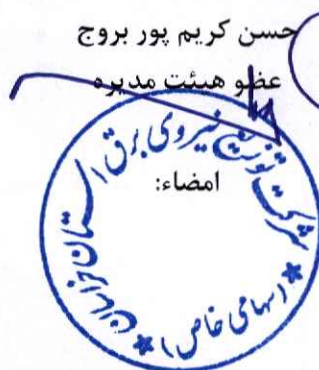 حسن کریم پور بروج
عضو هیئت مدیره
امضاء:
شرکت توزیع نیروی برق استان تهران
(سهامی خاص)